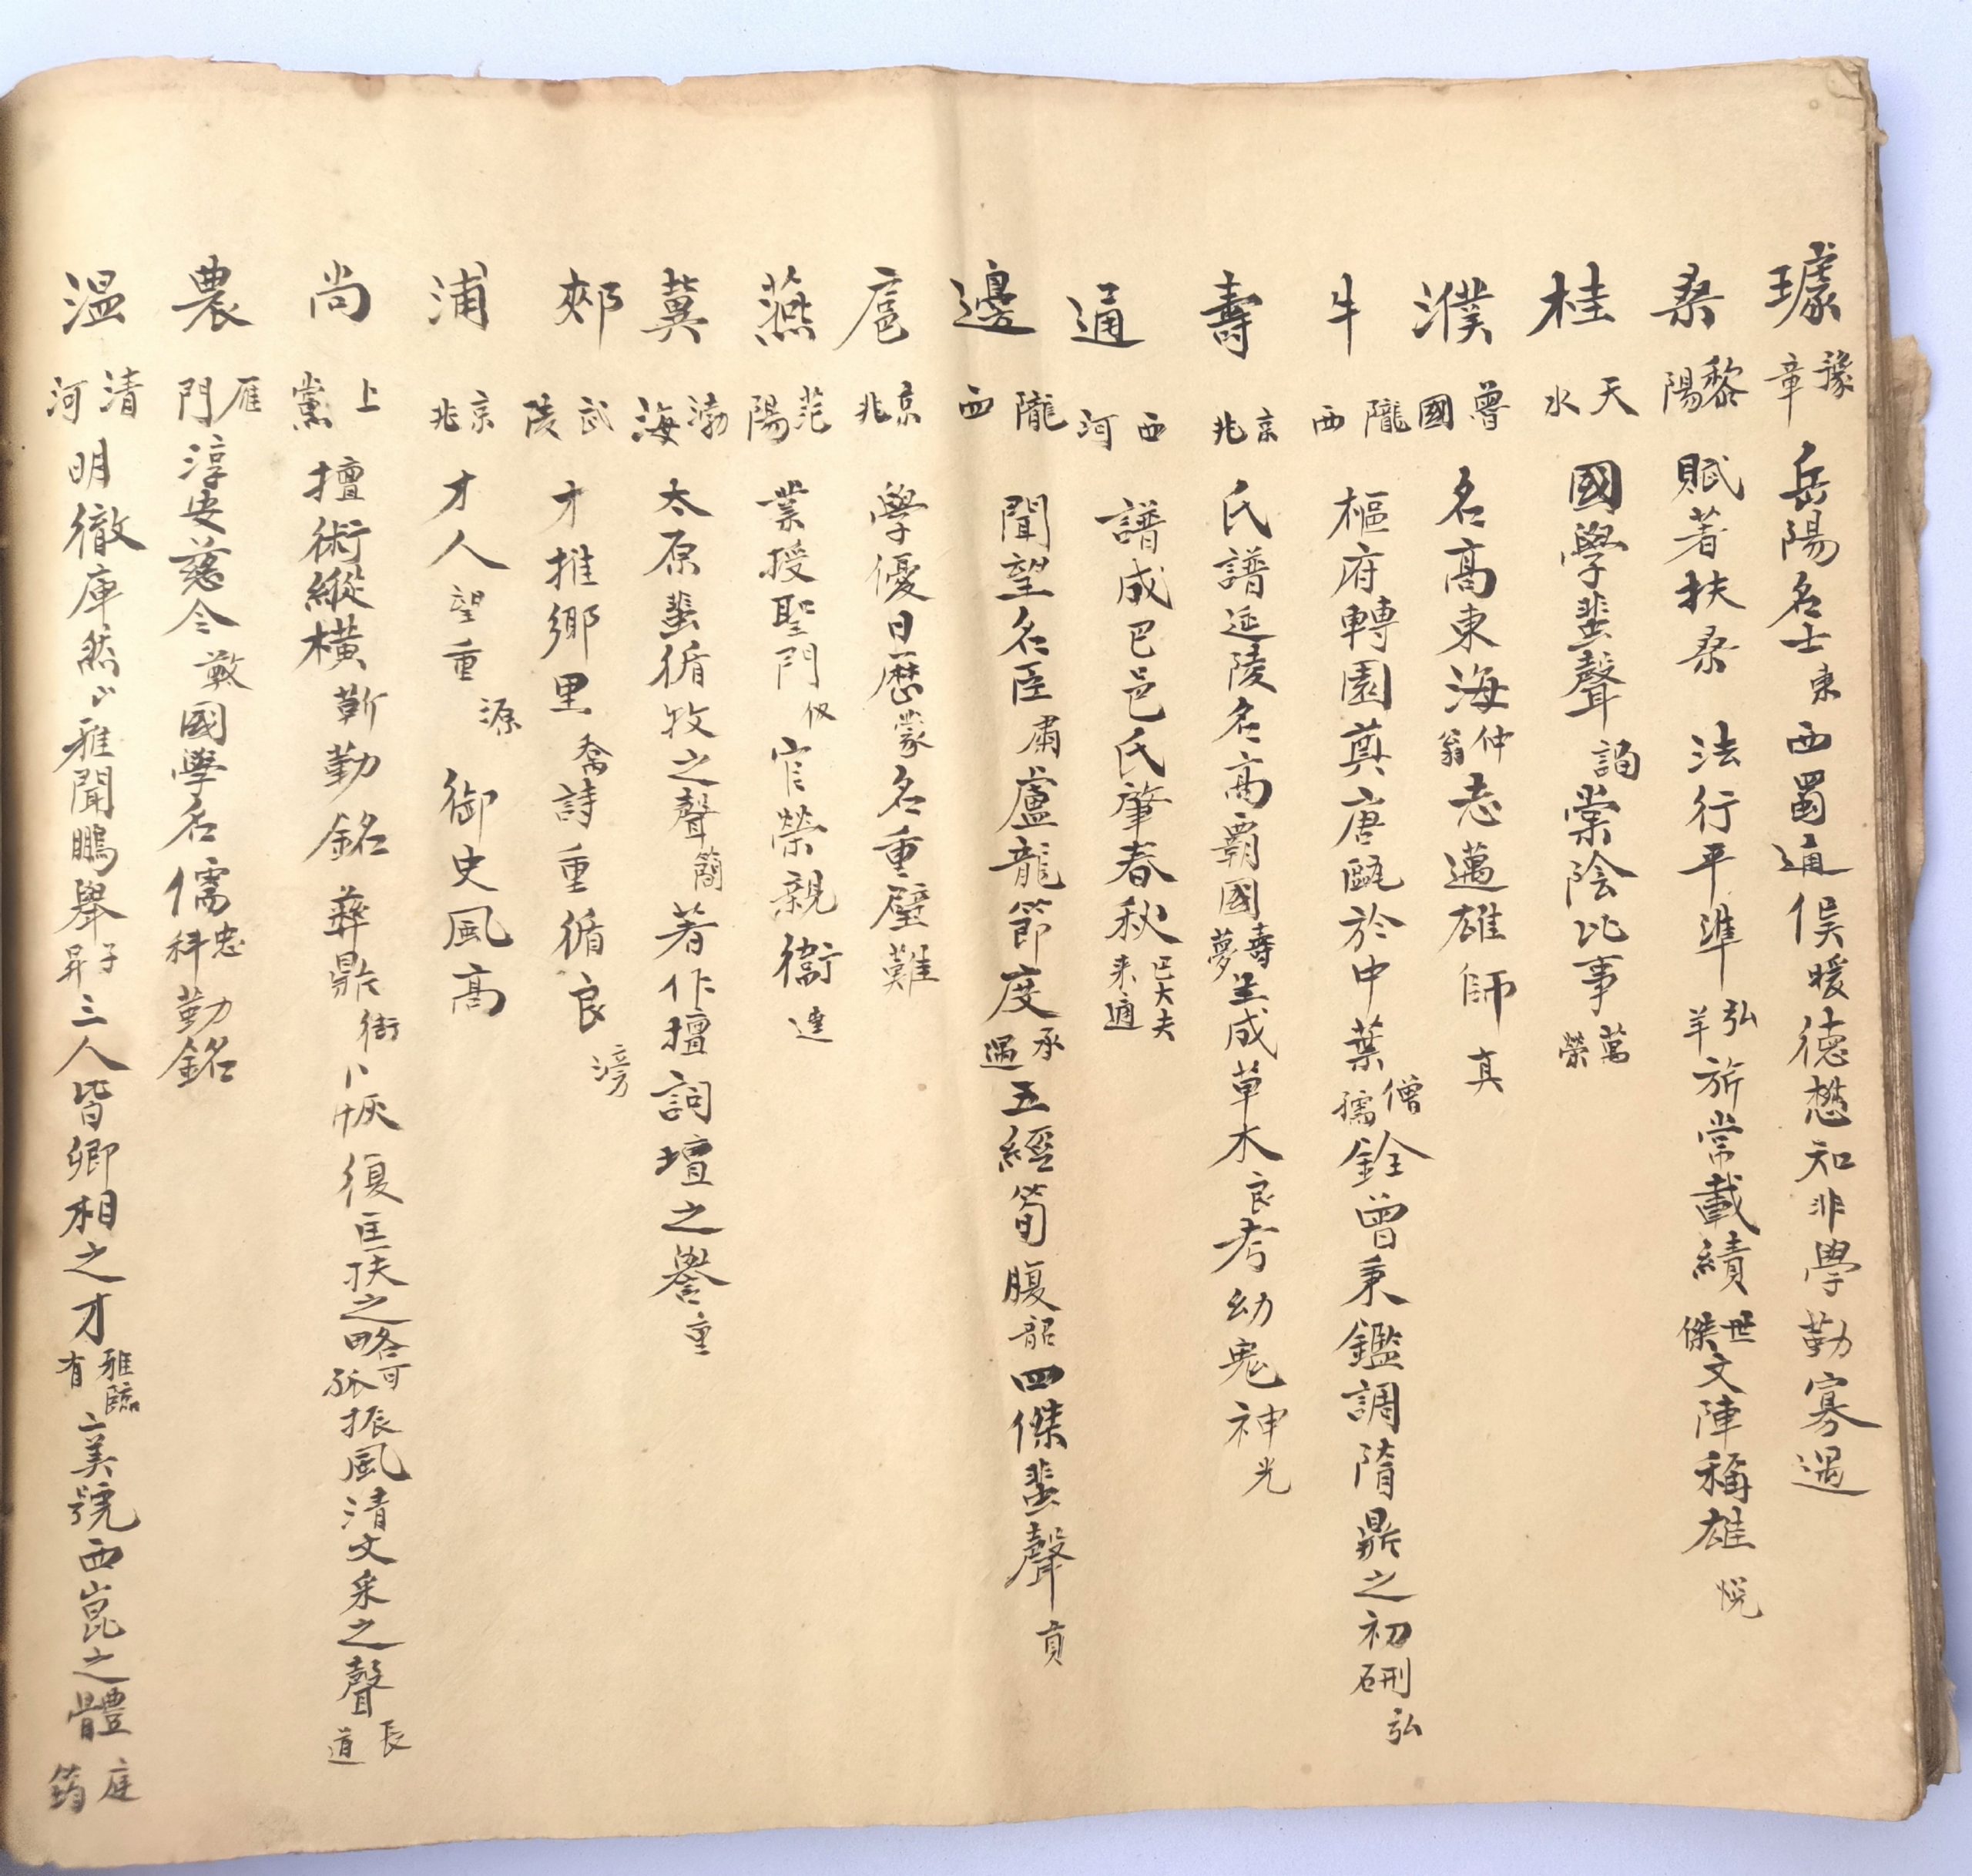 璩 豫章 岳陽名士東西蜀通侯暖德懋知非學勤寡過
桑 黎陽 賦著扶桑 法行平準弘羊旂常載績世傑文陣稱雄悅
桂 天水 國學蜚聲詶棠陰比事萬榮
濮 魯國 名高東海仲翁志邁雄師真
牛 隴西 樞府轉圜奠唐甌於中葉僧孺銓曾秉鑑調隋鼎之初硎弘
壽 京兆 氏譜延陵名高霸國壽夢呈成草木良考幼鬼神光
通 西河 譜成巴邑氏肇春秋巴大夫來適
邊 隴西 聞望名臣肅盧龍節度承遇五經笥腹韶四傑蜚聲貢
扈 京兆 學優日曆蒙名重璧難
燕 范陽 業授聖門伋官榮親衞達
冀 渤海 太原蜚循牧之聲簡著作擅詞壇之譽重
郟 武陵 才推鄉里喬詩重循良滂
浦 京兆 才人望重源御史風高
尚 上黨 擅術縱橫靳勤銘彝鼎衒恢復匡扶之略可孤振風清文采之聲長道
農 雁門 淳安慈令敏國學名儒忠科勤銘
温 清河 明徹庫然雅聞鵬舉子昇三人皆卿相之才雅臨有美號西崑之體庭筠